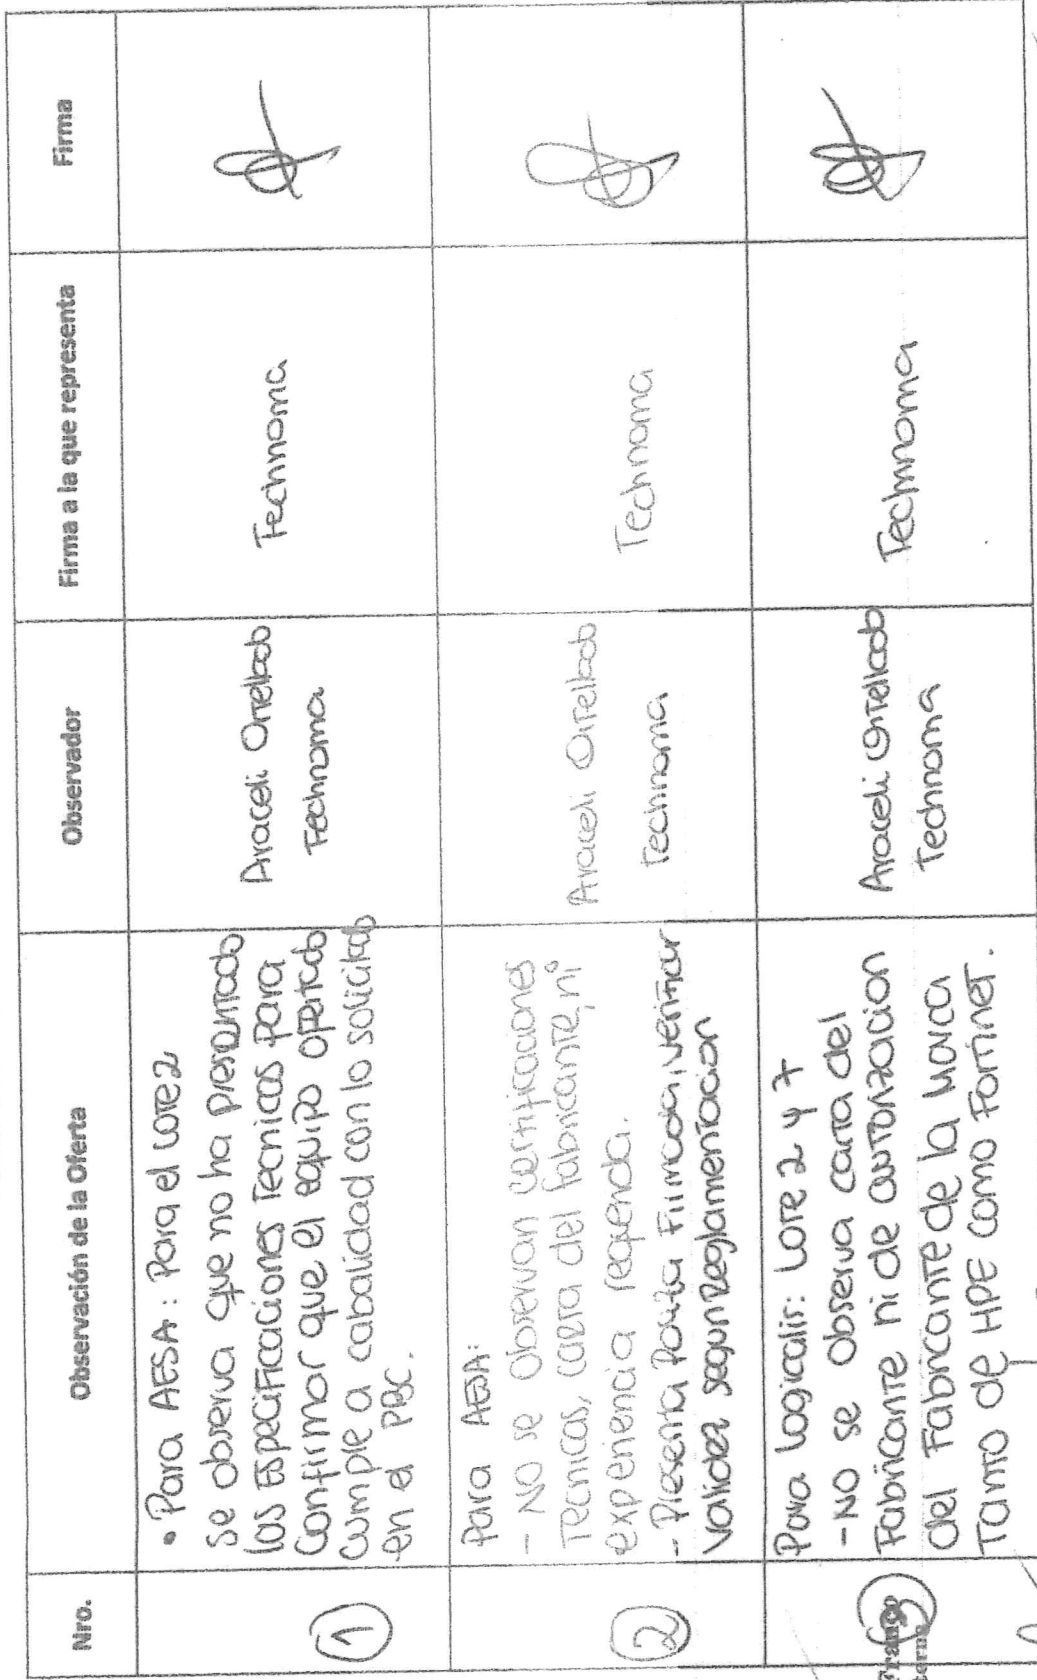 Nro.
Observación de la Oferta
Observador
Firma a la que representa
Firma
1
• Para AESA: Para el Lote 2
se observa que no ha presentado
las Especificaciones Tecnicas para
Confirmar que el equipo ofertado
cumple a cabalidad con lo solicitado
en el PBC.
Araceli Orrellado
Technoma
Technoma
2
Para AESA:
- No se observan certificaciones
Tecnicas, carta del fabricante, ni
experiencia requerida.
- Presenta Poliza Firmada, verificar
validez segun Reglamentacion
Araceli Orrellado
Technoma
Technoma
3
Para Logicalis: Lote 2 y 7
- No se observa carta del
Fabricante ni de autorizacion
del Fabricante de la Marca
Tanto de HPE como Fortinet.
Araceli Orrellado
Technoma
Technoma